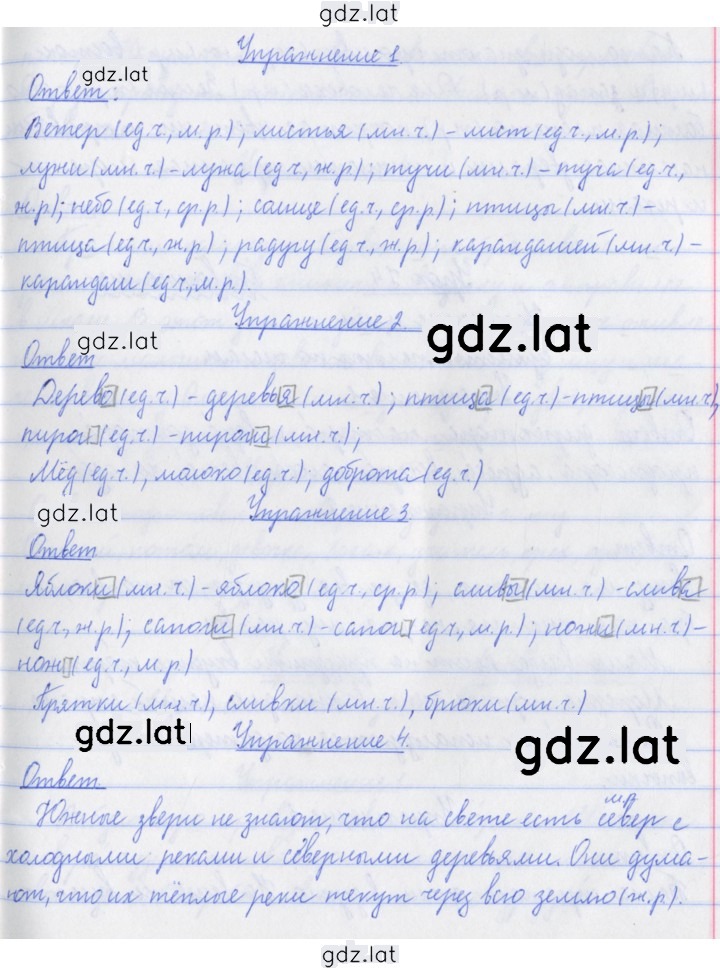 gdz.lat
Упражнение 1
gdz.lat
Ответ:
Ветер (ед.ч., м.р.); листья (мн.ч.) – лист (ед.ч., м.р.);
лужи (мн.ч.) – лужа (ед.ч., ж.р.); тучи (мн.ч.) – туча (ед.ч.,
ж.р.); небо (ед.ч., ср.р.); солнце (ед.ч., ср.р.); птицы (мн.ч.) –
птица (ед.ч., ж.р.); радугу (ед.ч., ж.р.); карандашей (мн.ч.) –
карандаш (ед.ч., м.р.).
Упражнение 2.
gdz.lat
gdz.lat
Ответ
Дерево (ед.ч.) – деревья (мн.ч.); птица (ед.ч.) – птицы (мн.ч.),
пирог (ед.ч.) – пироги (мн.ч.);
Мёд (ед.ч.), молоко (ед.ч.), доброта (ед.ч.)
gdz.lat
Упражнение 3.
Ответ
Яблоки (мн.ч.) – яблоко (ед.ч., ср.р.); сливы (мн.ч.) – слива
(ед.ч., ж.р.); сапоги (мн.ч.) – сапог (ед.ч., м.р.); ножи (мн.ч.) –
нож (ед.ч., м.р.)
Прятки (мн.ч.), сливки (мн.ч.), брюки (мн.ч.)
gdz.lat
Упражнение 4.
gdz.lat
Ответ
м.р.
Южные звери не знают, что на свете есть север с
холодными реками и северными деревьями. Они дума-
ют, что их тёплые реки текут через всю землю (ж.р.).
gdz.lat